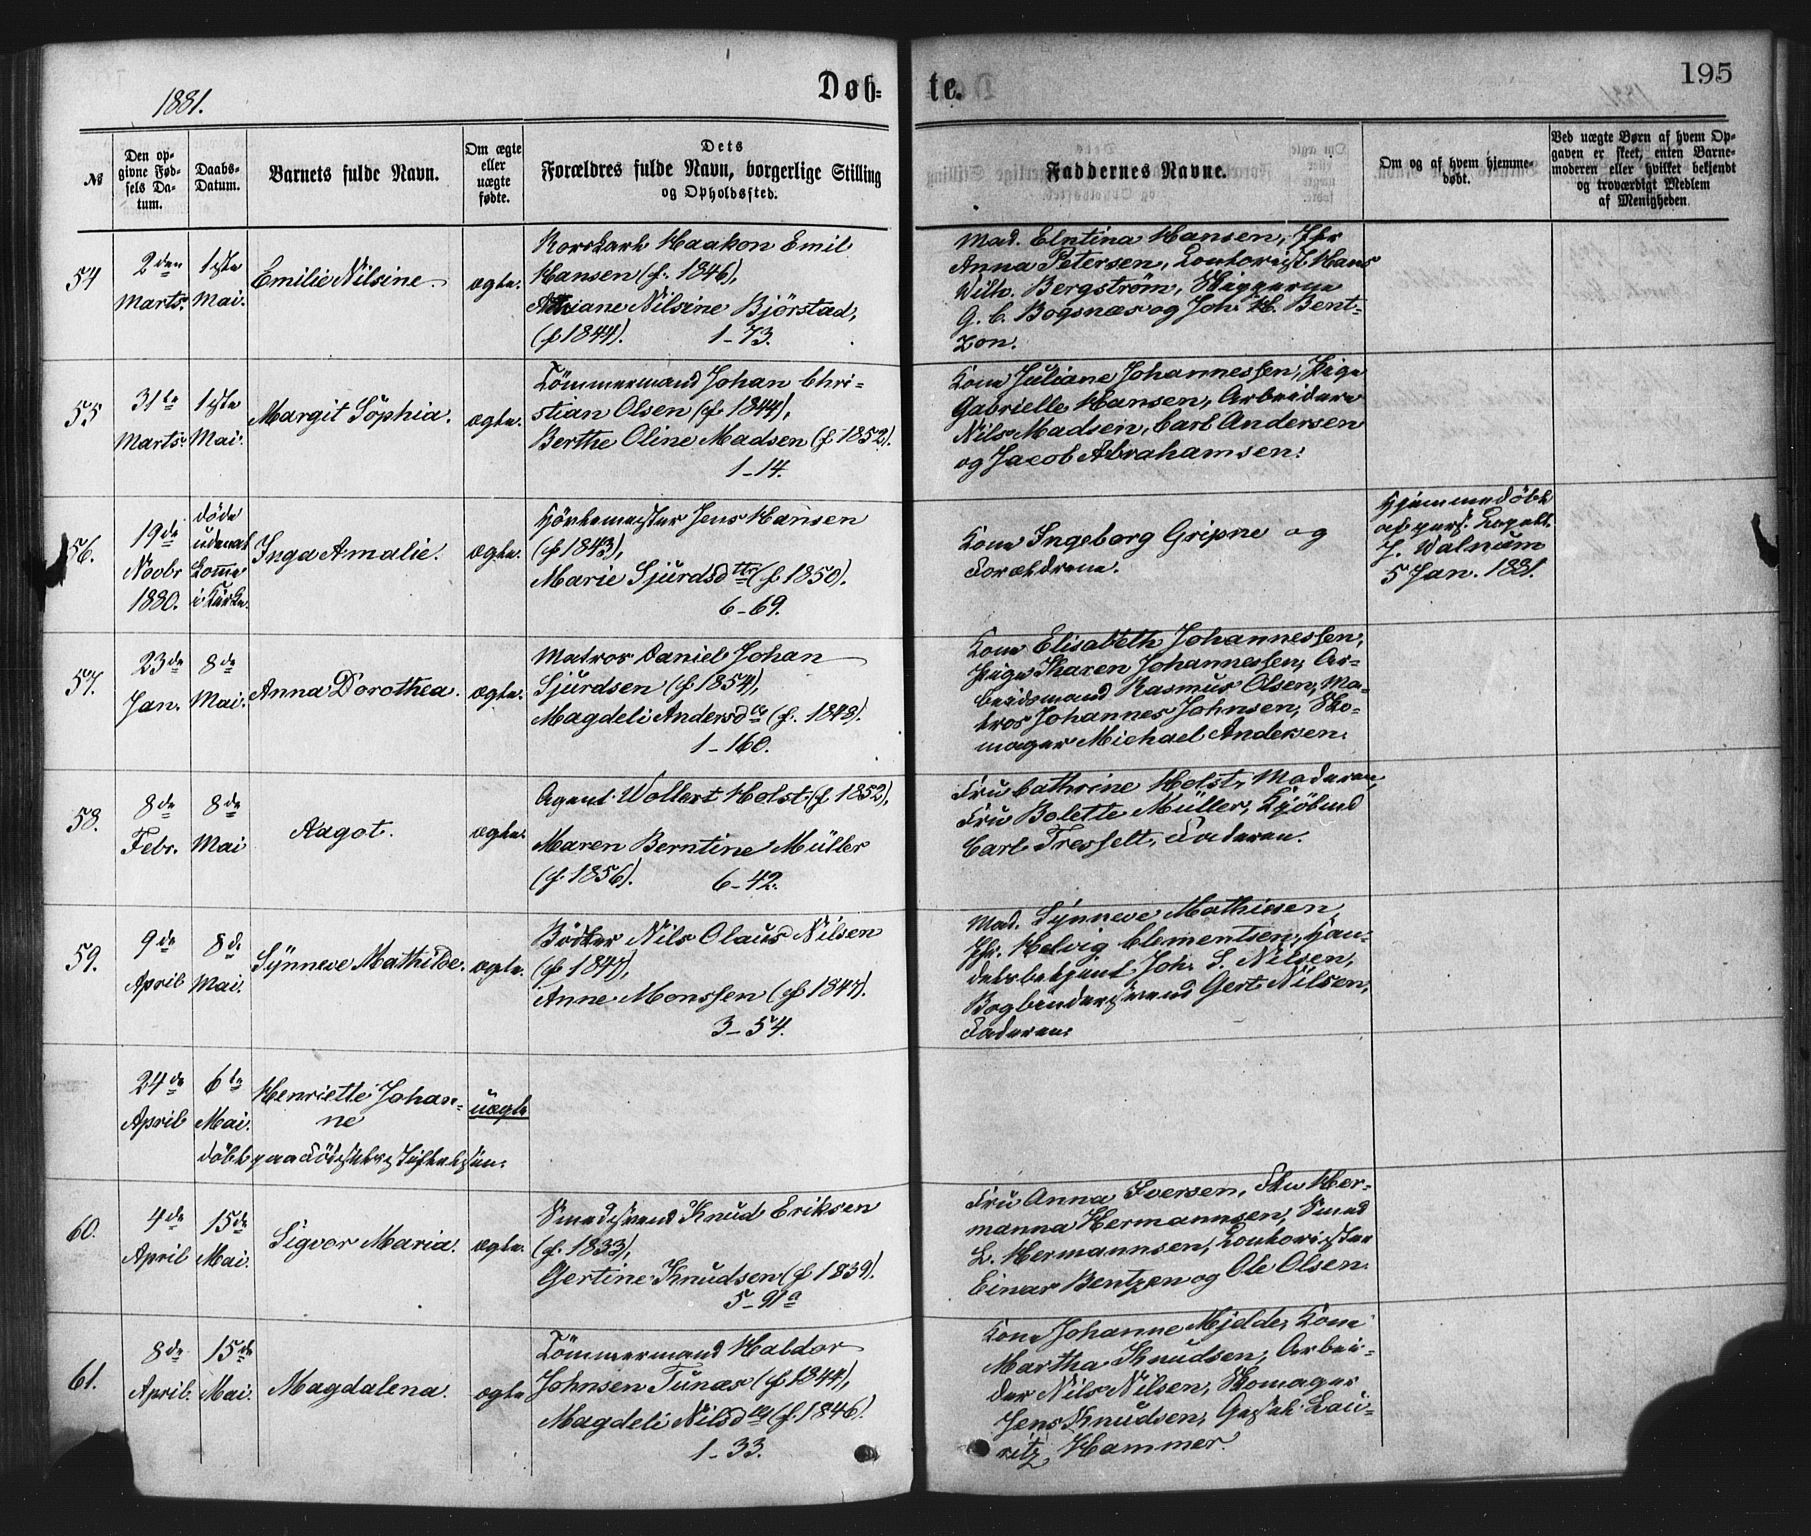 1881.
Døb-
te.
195
№
Den op-
givne Fød-
sels Da-
tum.
Daabs-
Datum.
Barnets fulde Navn.
Om ægte
eller
uægte
fødte.
Dets
Forældres fulde Navn, borgerlige Stilling
og Opholdssted.
Faddernes Navne.
Om og af hvem hjemme-
døbt.
Ved uægte Børn af hvem Op-
gaven er skeet, enten Barne-
moderen eller hvilket bekjendt
og troværdigt Medlem
af Menigheden.
54
2den
Marts.
1ste
Mai.
Emilie Nilsine
ægte.
Haakon Emil
Hansen (f. 1846),
Nilsine Bjørstad,
(f 1844). 1-73.
Mad. Elntina Hansen, Jfr
Anna Petersen, Contorist Hans
Wilh. Bergstrøm, Skipperne
G. C. Bogsnæs og Joh. H. Bent-
zon.
55
31te
Marts.
1ste
Mai.
Margit Sophia.
ægte.
Tömmermand Johan Chri-
stian Olsen (f. 1844),
Berthe Oline Madsen (f 1852).
1-14.
Kone Juliane Johannessen, Pige
Gabrielle Hansen, Arbeiderne
Nils Madsen, Carl Andersen
og Jacob Abrahamsen.
56.
19de
Novbr
1880.
døde
uden at
komme
i Kirke.
Inga Amalie.
ægte.
Jens Hansen
(f 1843),
Marie Sjurdsdttr (f. 1850).
6-69.
Kone Ingeborg Gripne og
Forældrene.
Hjemmedöbt
af pers. Capell.
J. Walnum
5 Jan. 1881.
57.
23de
Jan.
8de
Mai.
Anna Dorothea.
ægte.
Matros Daniel Johan
Sjurdsen (f. 1854),
Magdeli Andersda (f. 1848).
1-160.
Kone Elisabeth Johannessen,
Pige Karen Johannessen, Ar-
beidsmand Rasmus Olsen, Ma-
tros Johannes Johnsen, Sko-
mager Michael Andersen.
58.
8de
Febr.
8de
Mai
Aagot.
ægte.
Agent Wollert Holst (f 1852),
Maren Berntine Müller
(f. 1856). 6-42.
Fru Cathrine Holst, Moderen,
Fru Bolette Müller, Kjöbmd
Carl Tresselt, Faderen.
59.
9de
April
8de
Mai.
Synneve Mathilde.
ægte.
Bödker Nils Olaus Nilsen
(f 1847),
Anne Monssen (f 1847).
3-54.
Mad. Synneve Mathiesen,
Jfr. Helvig Clementsen, Han-
delsbetjent Joh. S. Nilsen,
Bogbindersvend Gert Nilsen,
Faderen.
24de
April
6te
Mai.
Henriette Johan-
ne
uægte
döbt paa Födselsstiftelsen.
60.
4de
April
15de
Mai.
Sigvor Maria.
ægte.
Smedsvend Knud Eriksen
(f. 1833),
Gertine Knudsen (f 1839).
5-91a
Fru Anna Iversen, Fru Her-
manna Hermannsen, Smed
L. Hermannsen, Contorister
Einar Bentzen og Ole Olsen.
61.
8de
April.
15de
Mai.
Magdalena.
ægte
Tömmermand Haldor
Johnsen Tunæs (f 1844),
Magdeli Nilsda (f. 1846).
1-33.
Kone Johanne Mjelde, Kone
Martha Knudsen, Arbei-
der Nils Nilsen, Skomager
Jens Knudsen, Lau-
ritz Hammer.